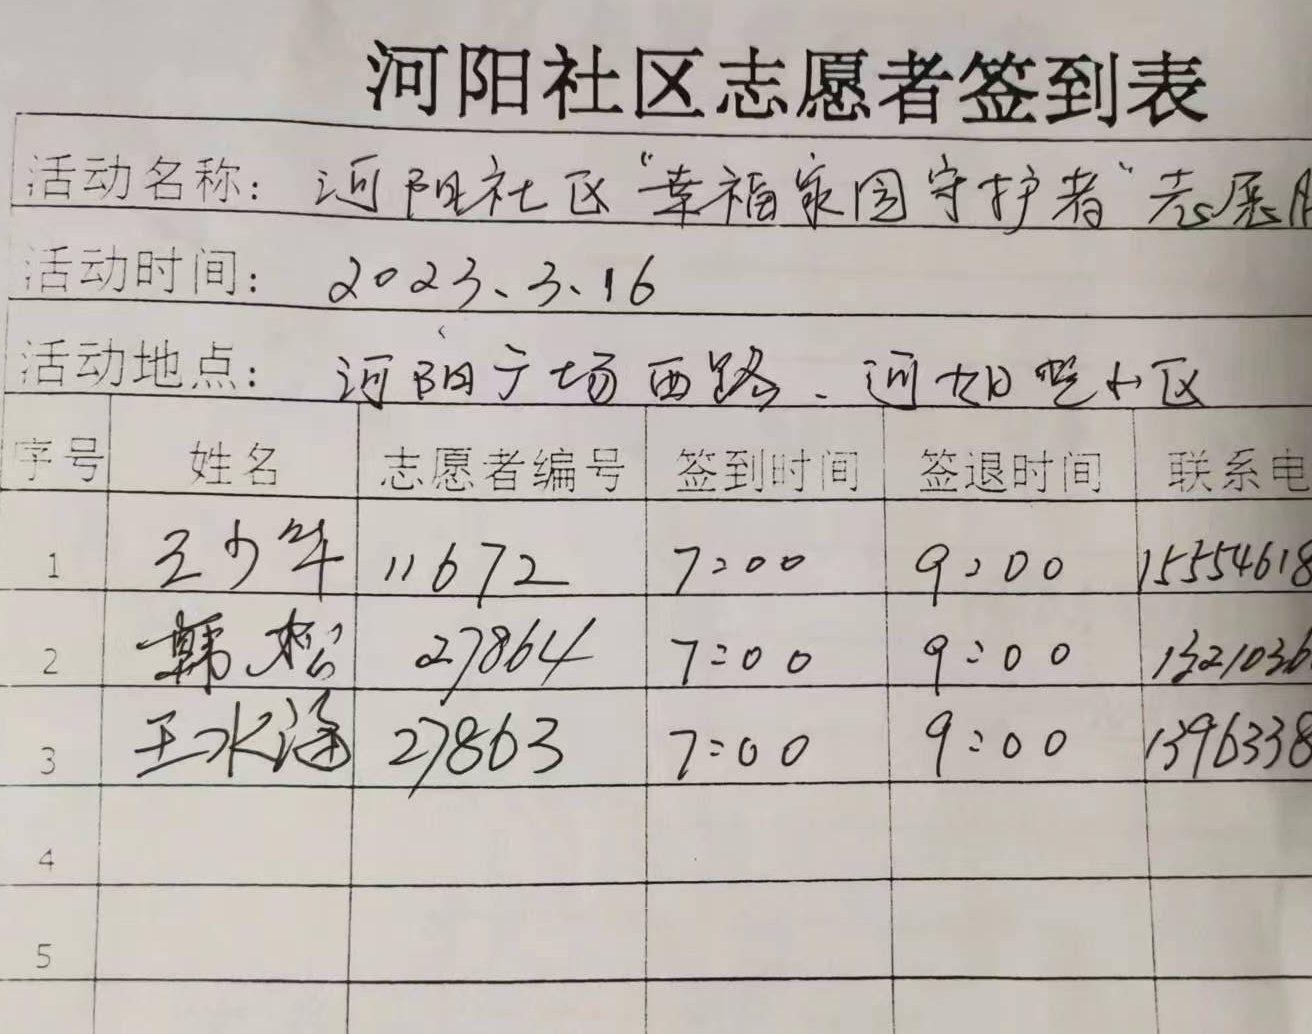 河阳社区志愿者签到表
活动名称: 河阳社区"幸福家园守护者"志愿
活动时间: 2023、3、16
活动地点: 河阳广场西路、河阳小区
序号 姓名 志愿者编号 签到时间 签退时间 联系电
1 王少华 11672 7:00 9:00 15554618
2 韩松 27864 7:00 9:00 1321036
3 王永涵 27863 7:00 9:00 1396338
4
5